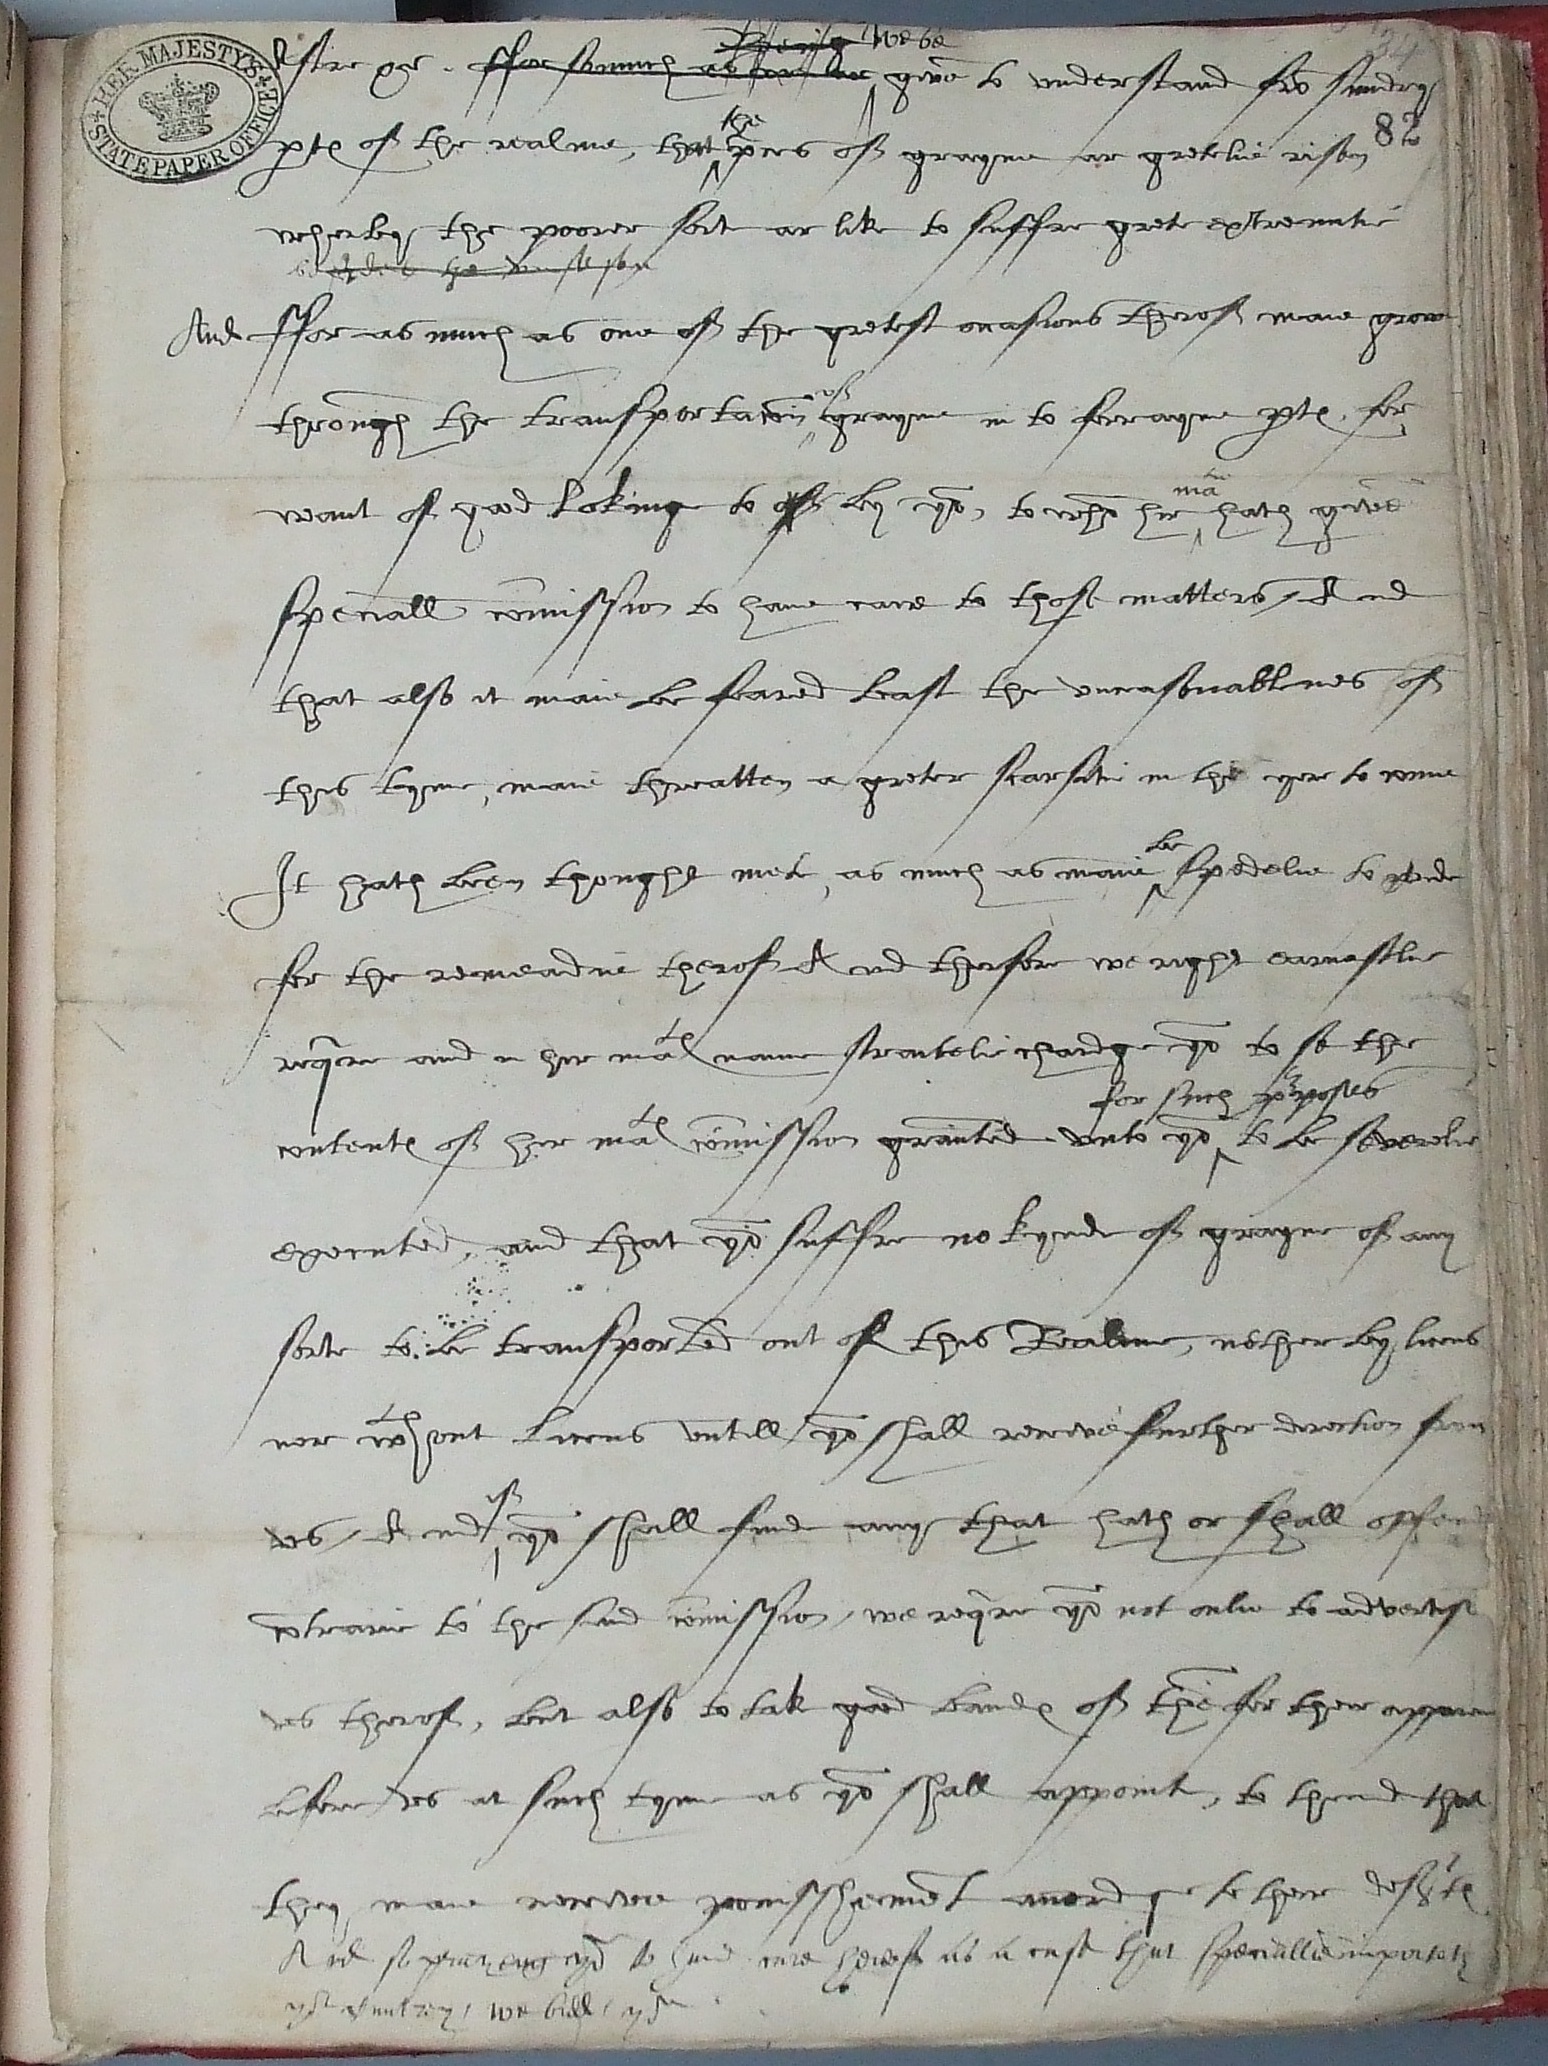 HER MAJESTY'S STATE PAPER OFFICE
34
82
we be
Aftre &c. ffor somuch as we are geuē to understand frō sundry
the
ptes of the realme, that prices of grayne ar gretelie risen
wherby the poorer sort ar like to suffre grete extremitie
And ffor as much as one of the gretest occasions therof maie grow
of
through the transportacōn grayne in to forrayne ptes, for
matie
want of good loking to by yō, to whō hir hath givē
speciall cōmission to have care to those matters / And
that also it maie be feared least the unceasonablenes of
this tyme, maie threatten a greter skarsitie in the yere to come
be
It hath been thought mete, as much as maie spedelie to pvide
for the remeadie therof And therfore we right earnestlie
reqire and in hir matꝭ name straitelie chardge yō to se the
for such purposes
contentꝭ of her matꝭ cōmission graunted unto yō to be severelie
executed, and that yō suffre no kynde of grayne of any
sorte to be transported out of this Realme, nether by licens
nor wthout licens untill yō shall receive further direction from
if
us / And yō shall finde any that hath or shall offend
cōtrarie to the said cōmission, we reqire yō not onlie to advertise
us therof, but also to tak good bandꝭ of thē for their apparence
before us at such tyme as yō shall appoint, to thend that
they maie receive punisshemēt accordīge to their desertꝭ
And so praieng yō to have care herof as a case that speciallie importeth
yor cuntrey, we bidd yō